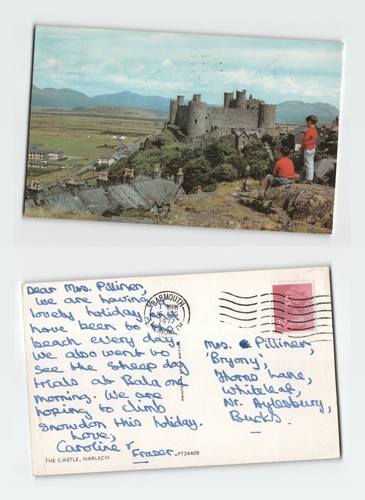 Dear Mrs. Pilliner,
We are having a
lovely holiday and
have been to the
beach every day.
We also went to
see the sheep dog
trials at Bala one
morning. We are
hoping to climb
Snowdon this holiday.
Love,
Caroline &
Fraser.
THE CASTLE, HARLECH
PT24409
BARMOUTH
AUG
1977
Mrs. Pilliner,
'Bryony',
Thorns Lane,
Whiteleaf,
Nr. Aylesbury,
Bucks.